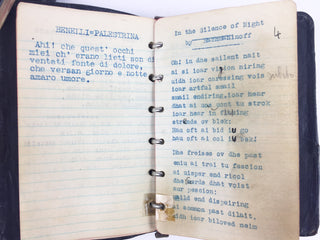 BENELLI=PALESTRINA
Ahi! che quest' occhi
miei ch' erano lieti son di
ventati fonte di dolore,
che versan giorno e notte
amaro umore.
In the Silence of Night
by
4
Oh! in dhe sailent nait
ai si ioar vision niring
uidh ioar caressing vois
ioar artful smail
smail endiring, ioar hear
dhat ai uos uont tu strok
ioar hear in fluing
strends ov blek:
Hau oft ai bid iu go
hau oft ai col iu bek!
Dhe freises ov dhe past
eniu ai trai tu fescion
ai uisper end ricol
dhe uords dhat voist
aur pescion:
uaild end dispeiring
ai sammon past dilait,
uidh ioar biloved neim